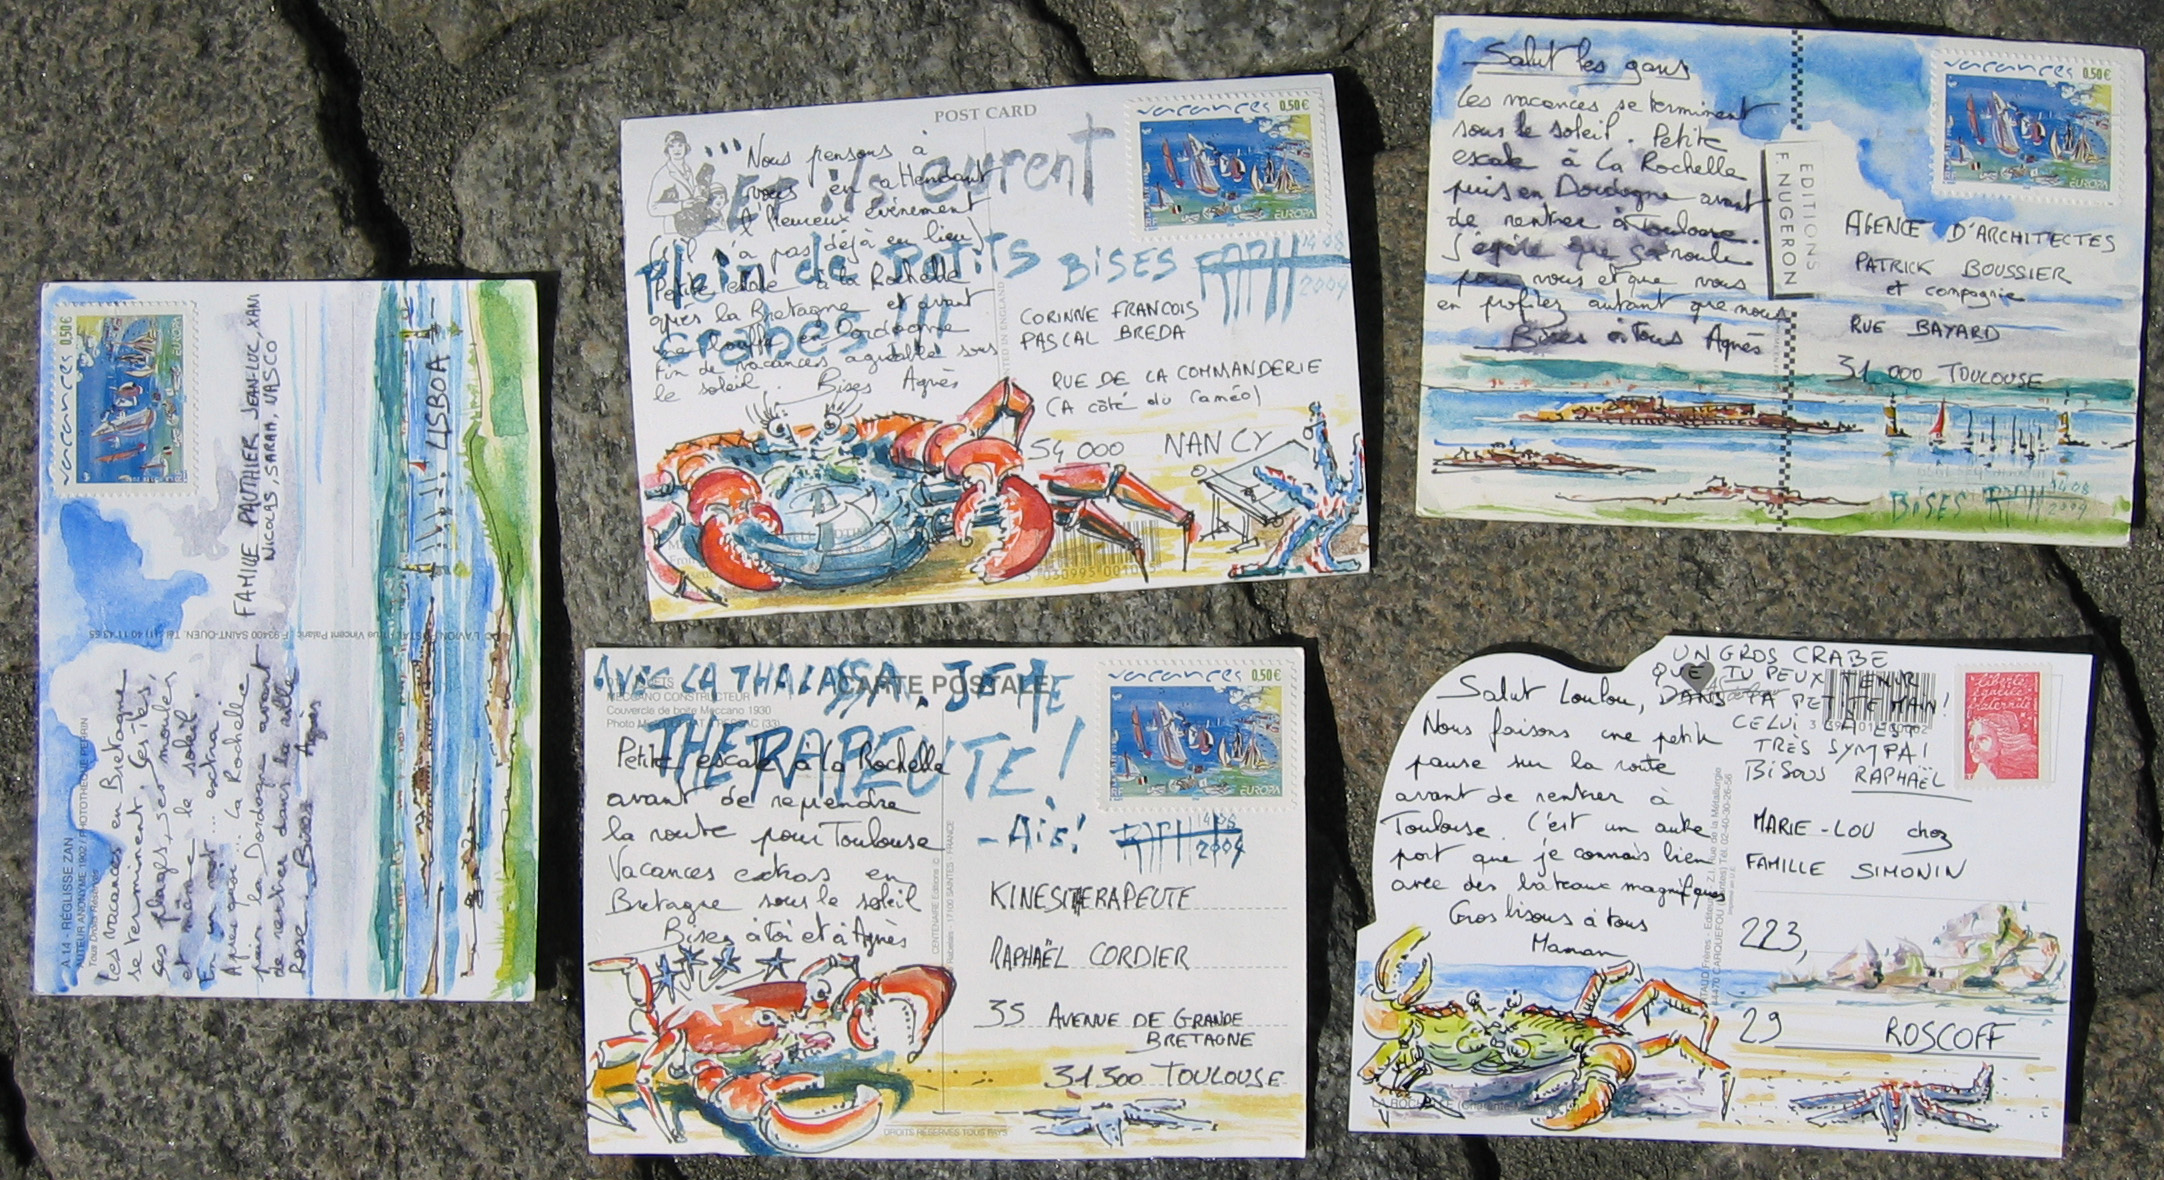 vacances 0,50€
EUROPA
FAMILLE PAUTHIER JEAN-LUC, XANI
NICOLAS, SARAH, VASCO
LISBOA
A 14 - RÉGLISSE ZAN
AUTEUR ANONYME 1902 / PHOTOTHEQUE PERRIN
Tous Droits Réservés
Les vacances en Bretagne
se terminent. Ses îles,
ses plages, ses moules
et même le soleil.
En un mot ... extra
Après quoi ... La Rochelle
puis la Dordogne avant
de rentrer dans la ville
Rose. Bises Agnès
POST CARD
vacances 0,50€
EUROPA
Nous pensons à
vous en attendant
l'heureux événement
(s'il n'a pas déjà eu lieu)
Petite escale à la Rochelle
après la Bretagne et avant
en Dordogne
Fin de vacances agréable sous
le soleil. Bises Agnès
... Et ils eurent
Plein de Petits
Crabes !!!
BISES RAPH 14.08
2004
PRINTED IN ENGLAND
CORINNE FRANCOIS
PASCAL BREDA
RUE DE LA COMMANDERIE
(A côté du Caméo)
54 000 NANCY
Salut les gars
Les vacances se terminent
sous le soleil. Petite
escale à La Rochelle
puis en Dordogne avant
de rentrer à Toulouse.
J'espère que ça roule
pour vous et que vous
en profitez autant que nous
Bises à tous Agnès
EDITIONS
F. NUGERON
vacances 0,50€
EUROPA
AGENCE D'ARCHITECTES
PATRICK BOUSSIER
et compagnie
RUE BAYARD
31 000 TOULOUSE
BISES RAPH 14.08
2004
AVEC LA THALASSA, JE TE
THERAPEUTE !
- Aïe !
RAPH 14.08
2004
CARTE POSTALE
MECCANO CONSTRUCTEUR
Couvercle de boite Meccano 1930
vacances 0,50€
EUROPA
Petite escale à la Rochelle
avant de reprendre
la route pour Toulouse
Vacances extras en
Bretagne sous le soleil
Bises à toi et à Agnès
CENTENAIRE Editions ©
17100 SAINTES - FRANCE
KINESITERAPEUTE
RAPHAËL CORDIER
35 AVENUE DE GRANDE
BRETAGNE
31300 TOULOUSE
DROITS RÉSERVÉS TOUS PAYS
UN GROS CRABE
QUE TU PEUX TENIR
DANS TA PETITE MAIN !
CELUI LA EST
TRÈS SYMPA !
BISOUS RAPHAËL
Salut Loulou,
Nous faisons une petite
pause sur la route
avant de rentrer à
Toulouse. C'est un autre
port que je connais bien
avec des bateaux magnifiques
Gros bisous à tous
Maman
liberté
égalité
fraternité
MARIE-LOU chez
FAMILLE SIMONIN
223,
29 ROSCOFF
LA ROCHELLE